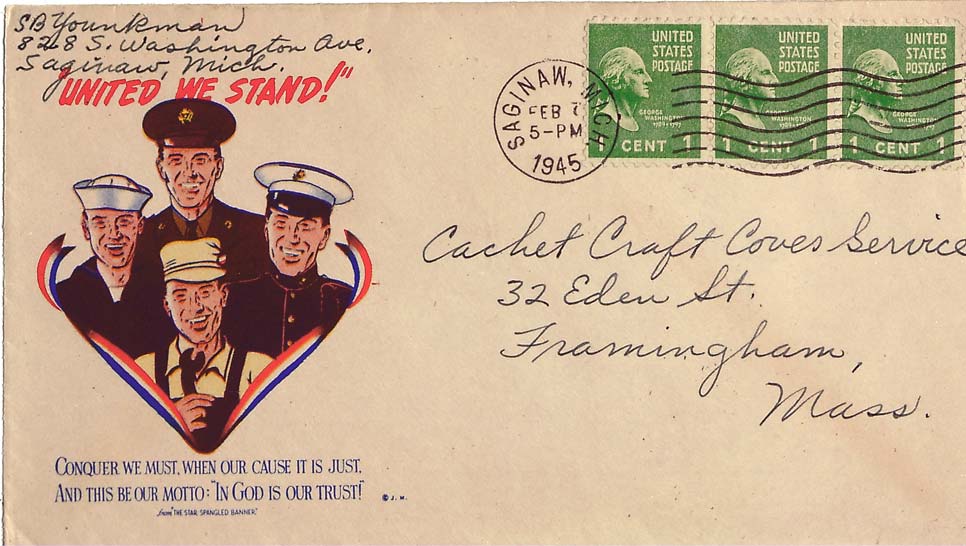 SB Younkman
828 S. Washington Ave.
Saginaw, Mich.
"UNITED WE STAND!"
SAGINAW, MICH
FEB
5-PM
1945
UNITED
STATES
POSTAGE
GEORGE
WASHINGTON
1789-1797
1 CENT 1
UNITED
STATES
POSTAGE
GEORGE
WASHINGTON
1789-1797
1 CENT 1
UNITED
STATES
POSTAGE
GEORGE
WASHINGTON
1 CENT 1
Cachet Craft Coves Service
32 Eden St.
Framingham,
Mass.
CONQUER WE MUST, WHEN OUR CAUSE IT IS JUST,
AND THIS BE OUR MOTTO: "IN GOD IS OUR TRUST!"
from "THE STAR SPANGLED BANNER."
© J. M.